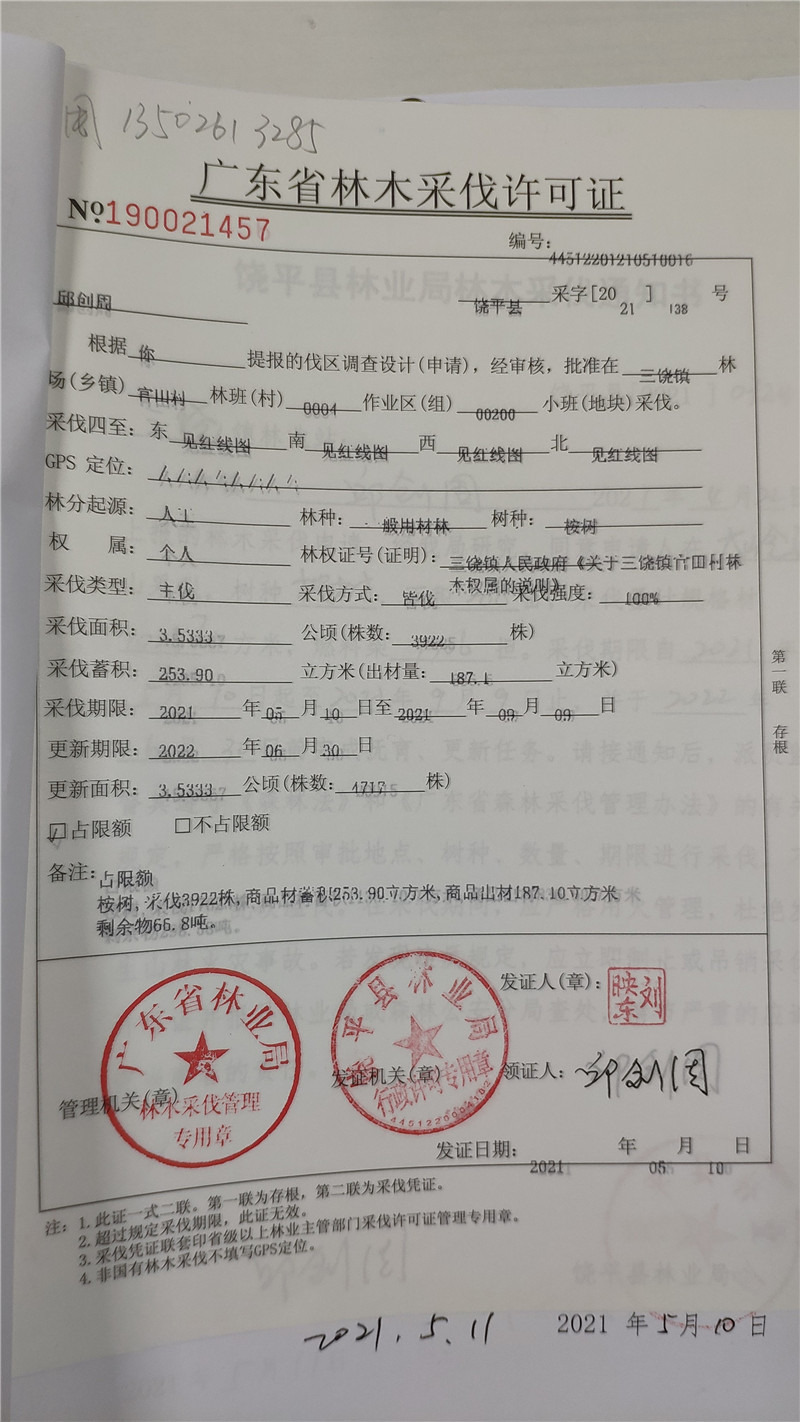 周 13502613285
广东省林木采伐许可证
№190021457
编号: 4451220121051001​6
饶平县 采字[2021] 138 号
邱创周
根据 你 提报的伐区调查设计(申请),经审核,批准在 三饶镇 林
场(乡镇) 林班(村) 0004 作业区(组) 00200 小班(地块)采伐。
采伐四至: 东 见红线图 南 见红线图 西 见红线图 北 见红线图
GPS 定位:
林分起源: 人工 林种: 一般用材林 树种: 桉树
权 属: 个人 林权证号(证明): 三饶镇人民政府《关于三饶镇 村林
木权属的说明》
采伐类型: 主伐 采伐方式: 皆伐 采伐强度: 100%
采伐面积: 3.5333 公顷(株数: 3922 株)
采伐蓄积: 253.90 立方米(出材量: 187.1 立方米)
采伐期限: 2021 年 05 月 10 日至 2021 年 09 月 09 日
更新期限: 2022 年 06 月 30 日
更新面积: 3.5333 公顷(株数: 4717 株)
☑占限额 □不占限额
备注: 占限额
桉树,采伐3922株,商品材蓄积253.90立方米,商品出材187.10立方米
剩余物66.8吨。
第一联 存根
广东省林业局
林木采伐管理
专用章
管理机关(章)
饶平县林业局
行政许可专用章
发证机关(章)
发证人(章): 刘映东
领证人: 邱创周
发证日期: 2021 年 05 月 10 日
注: 1.此证一式二联。第一联为存根,第二联为采伐凭证。
2.超过规定采伐期限,此证无效。
3.采伐凭证联套印省级以上林业主管部门采伐许可证管理专用章。
4.非国有林木采伐不填写GPS定位。
2021.5.11
2021 年 5 月 10 日